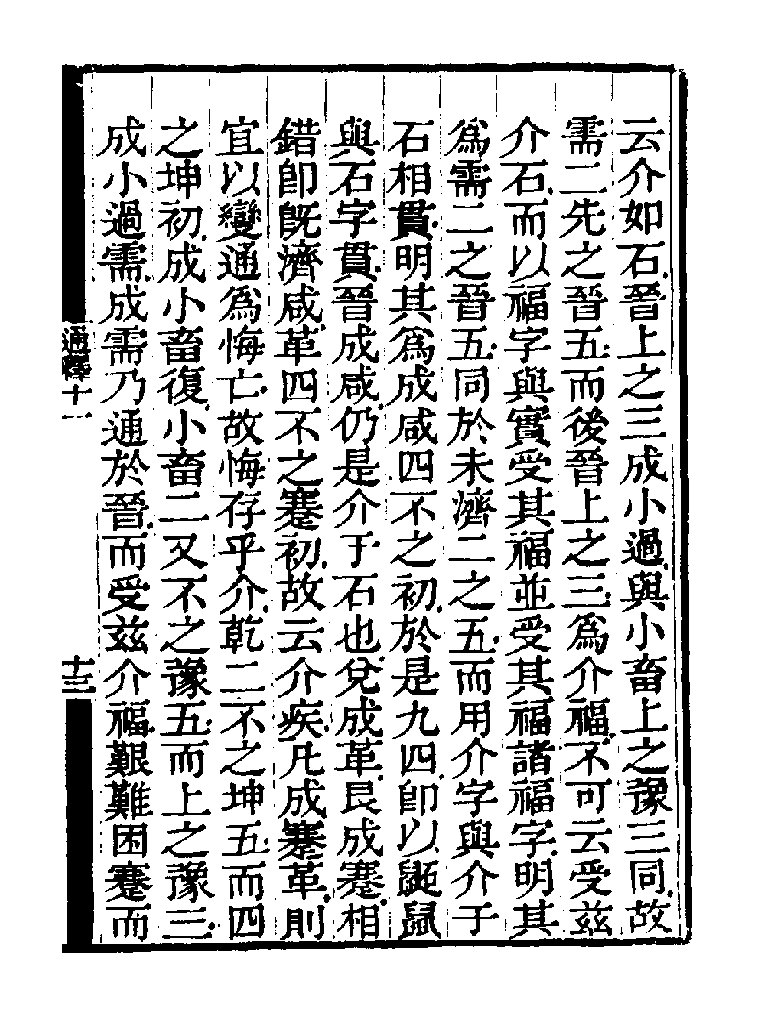 云介如石晉上之三成小過與小畜上之豫三同故
需二先之晉五而後晉上之三爲介福不可云受兹
介石而以福字與實受其福並受其福諸福字明其
爲需二之晉五同於未濟二之五而用介字與介于
石相貫明其爲成咸四不之初於是九四卽以鼫鼠
與石字貫晉成咸仍是介于石也兌成革艮成蹇相
錯卽旣濟咸革四不之蹇初故云介疾凡成蹇革則
宜以變通爲悔亡故悔存乎介乾二不之坤五而四
之坤初成小畜復小畜二又不之豫五而上之豫三
成小過需成需乃通於晉而受兹介福艱難困蹇而
通釋十一
十三